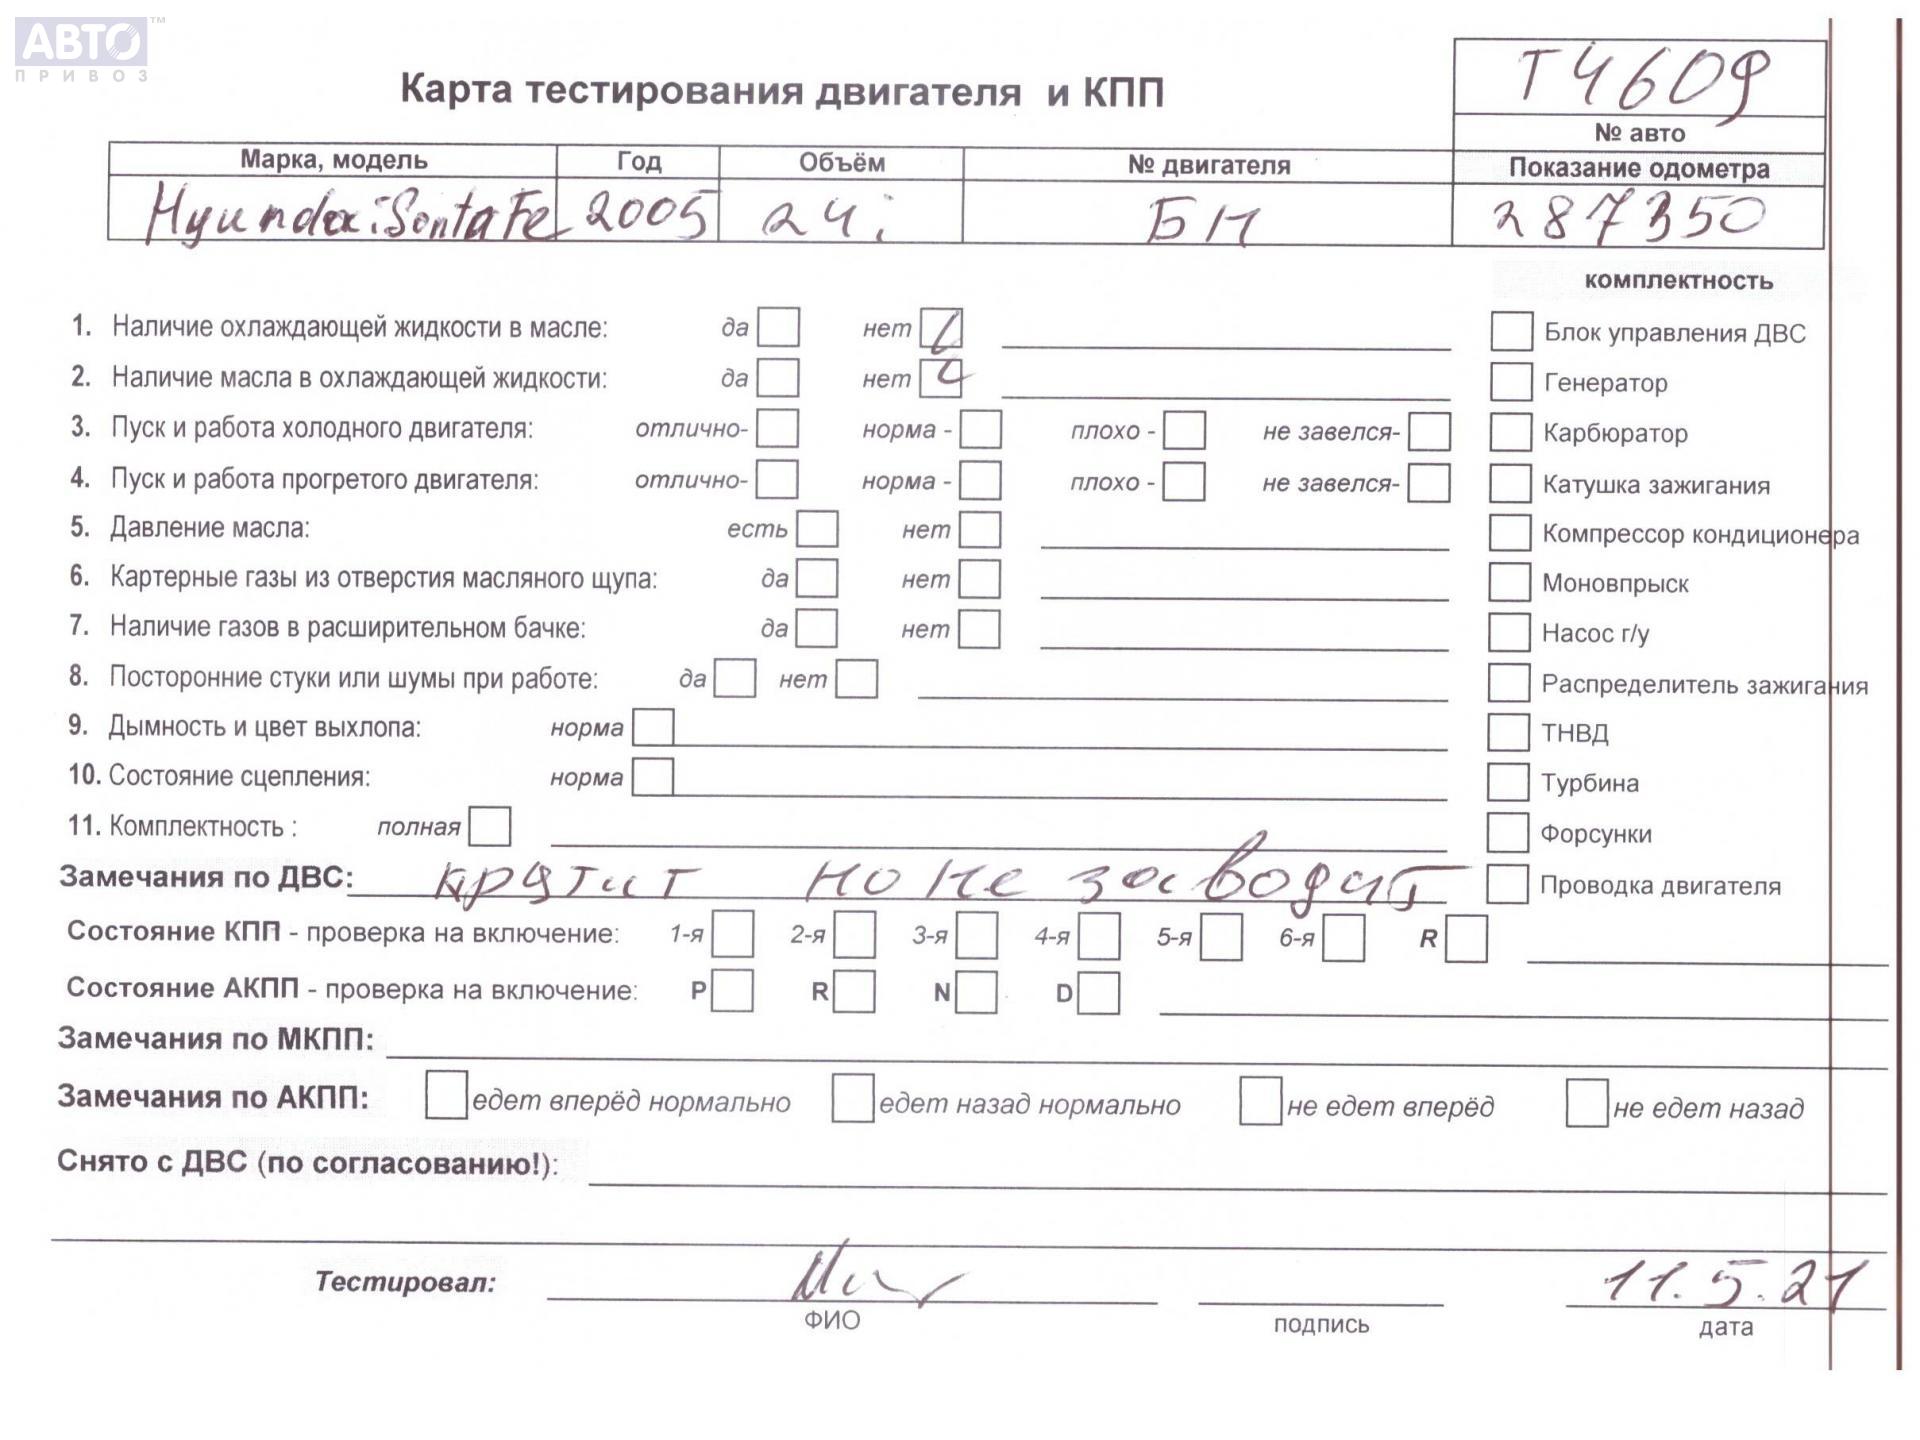 АВТО™
ПРИВОЗ
Т4609
Карта тестирования двигателя и КПП
№ авто
Марка, модель Год Объём № двигателя Показание одометра
Hyundai Santa Fe 2005 24i БН 287350
комплектность
1. Наличие охлаждающей жидкости в масле: да нет Блок управления ДВС
2. Наличие масла в охлаждающей жидкости: да нет Генератор
3. Пуск и работа холодного двигателя: отлично- норма - плохо - не завелся- Карбюратор
4. Пуск и работа прогретого двигателя: отлично- норма - плохо - не завелся- Катушка зажигания
5. Давление масла: есть нет Компрессор кондиционера
6. Картерные газы из отверстия масляного щупа: да нет Моновпрыск
7. Наличие газов в расширительном бачке: да нет Насос г/у
8. Посторонние стуки или шумы при работе: да нет Распределитель зажигания
9. Дымность и цвет выхлопа: норма ТНВД
10. Состояние сцепления: норма Турбина
11. Комплектность : полная Форсунки
Замечания по ДВС: крутит но не заводит Проводка двигателя
Состояние КПП - проверка на включение: 1-я 2-я 3-я 4-я 5-я 6-я R
Состояние АКПП - проверка на включение: P R N D
Замечания по МКПП:
Замечания по АКПП: едет вперёд нормально едет назад нормально не едет вперёд не едет назад
Снято с ДВС (по согласованию!):
Тестировал: 11.5.21
ФИО подпись дата